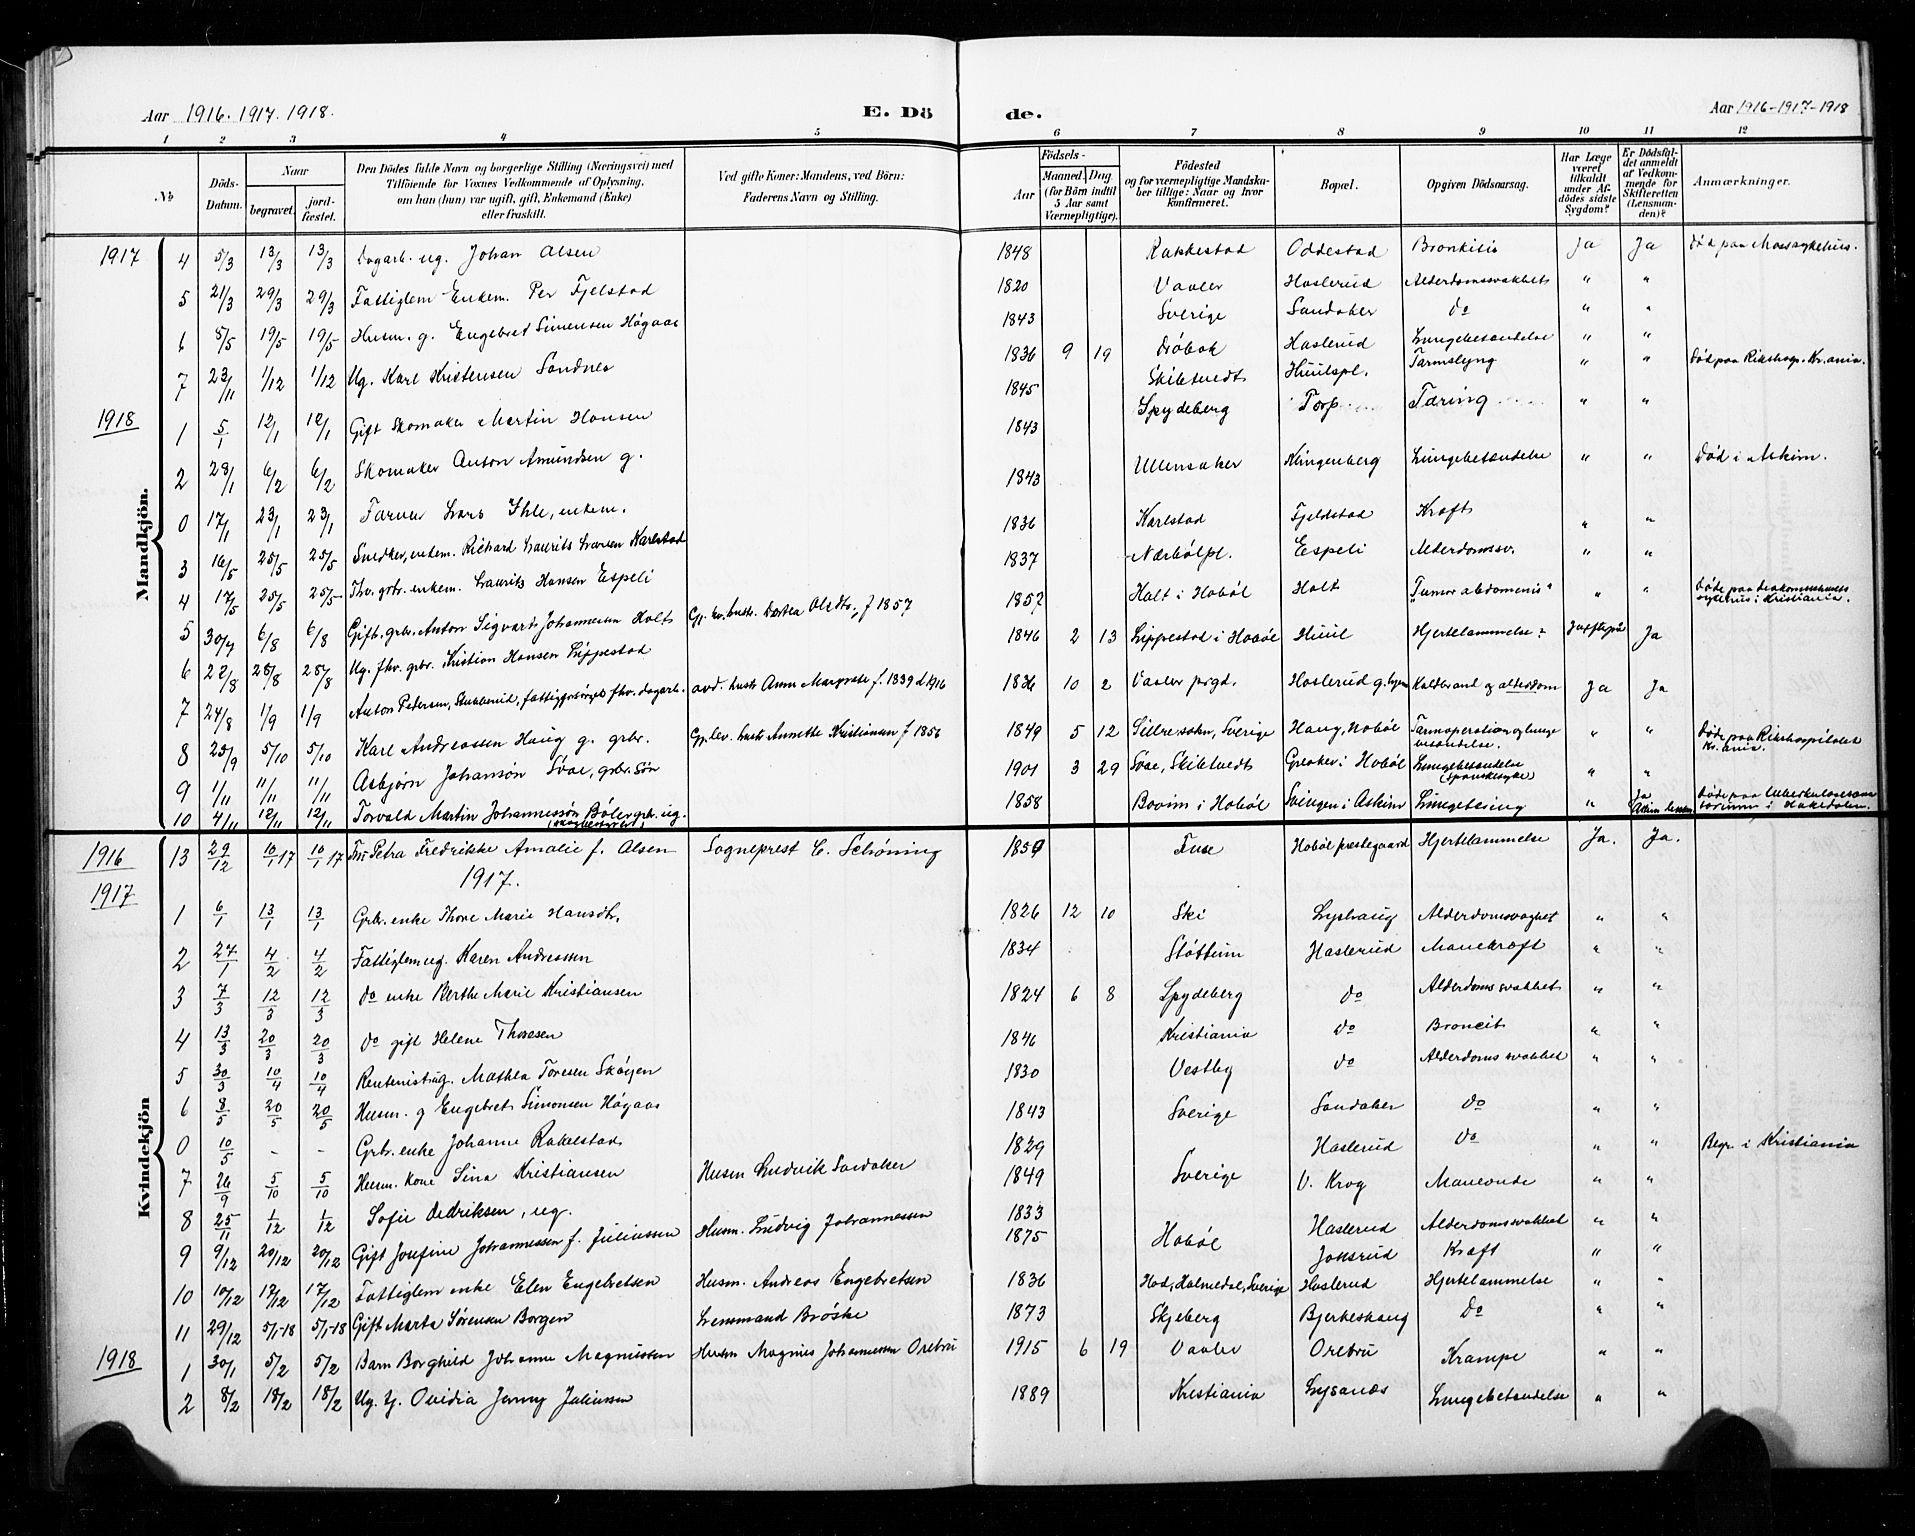 Aar 1916. 1917. 1918.
E. Dö
de.
Aar 1916-1917-1918
1 2 3 4 5 6 7 8 9 10 11 12
No
Döds-Datum.
Naar
begravet.
jordfæstet.
Den Dödes fulde Navn og borgerlige Stilling (Næringsvei) med
Tilföiende for Voxnes Vedkommende af Oplysning,
om han (hun) var ugift, gift, Enkemand (Enke)
eller fraskilt.
Ved gifte Koner: Mandens, ved Börn:
Faderens Navn og Stilling.
Födsels-
Aar
Maaned. Dag
(for Börn indtil
5 Aar samt
Værnepligtige).
Födested
og for værnepligtige Mandskaber tillige: Naar og hvor
konfirmeret.
Bopæl.
Opgiven Dödsaarsag.
Har Læge
været
tilkaldt
under Afdödes sidste
Sygdom?
Er Dödsfaldet anmeldt
af Vedkommende for
Skifteretten
(Lensmanden)?
Anmærkninger.
Mandkjön.
1917 4 5/3 13/3 13/3 Dagarb. ug. Johan Olsen 1848 Rakkestad Oddestad Bronkitis Ja Ja Död paa Moss sykehus.
5 21/3 29/3 29/3 Fattiglem Enkem. Per Fjelstad 1820 Vaaler Haslerud Alderdomssvakhet " "
6 8/5 19/5 19/5 Husm. g. Engebret Simensen Högaas 1843 Sverige Sandaker do " "
7 23/11 1/12 1/12 Ug. Karl Kristensen Sandnes 1836 9 19 Dröbak Haslerud Lungebetændelse " "
1845 Skibtvedt Huulspl. Tarmslyng " " Död paa Rikshosp. Kr.ania.
1918 1 5/1 12/1 12/1 Gift Skomaker Martin Hansen 1843 Spydeberg Torp Tæring " "
2 28/1 6/2 6/2 Skomaker Anton Amundsen g. 1843 Ullensaker Klingenberg Lungebetændelse " " Död i Askim.
0 17/1 23/1 23/1 Farver Lars Ihle, enkem. 1836 Karlstad Fjeldstad Kræft " "
3 16/5 25/5 25/5 Snedker, enkem. Richard Laurits Larsen Karlstad 1837 Nærbölpl. Espeli Alderdomssv. " "
4 17/5 25/5 25/5 Fhv. grbr. enkem. Laurits Hansen Espeli 1857 Holt i Hobøl Holt "Tumor abdominis" " " Döde paa Diakonissehusets sykehus i Kristiania.
5 30/7 6/8 6/8 Gift. grbr. Anton Sigvard Johannesen Holt Gj.lev. hustr. Dortea Olsdtr, f 1857 1846 2 13 Lippestad i Hobøl Huul Hjertelammelse? Ja
6 22/8 25/8 25/8 Ug. fhv. grbr. Kristian Hansen Lippestad 1836 10 2 Vaaler prgd. Haslerud g.hjem Koldbrand og alderdom Ja Ja
7 24/8 1/9 1/9 Anton Pedersen, Stubberud, fattigforsörget fhv. dagarb. avd. hustr Anne Margrete f. 1839 d. 1916 1849 5 12 Sillre sokn, Sverige Haug, Hobøl Tarmoperation og lungebetændelse. " " Döde paa Rikshospitalet Kr.ania.
8 25/9 5/10 5/10 Karl Andreassen Haug g. grbr. Gj.lev. hustr Annette Kristiansen f 1856 1901 3 29 Svae, Skibtvedt Greaker i Hobøl Lungebetændelse (spanskesyke) " "
9 1/11 11/11 11/11 Asbjørn Johansøn Svae, grbr. søn 1858 Bovim i Hobøl Svingen i Askim Lungetæring " Ja Döde paa Tuberkulosesanatorium i Hakedalen.
10 4/11 12/11 12/11 Torvald Martin Johannessøn Böler grbr. ug.
Kvindekjön
1916 13 29/12 10/1 17 10/1 17 Fru Petra Fredrikke Amalie f. Olsen Sogneprest C. Schöning 1859 Fuse Hobøl prestegaard Hjertelammelse Ja. Ja.
1917.
1917 1 6/1 13/1 13/1 Grbr. enke Thore Marie Hansdtr. 1826 12 10 Ski Lyshaug Alderdomsvaghet " "
2 27/1 4/2 4/2 Fattiglem ug. Karen Andreassen 1834 Støttum Haslerud Mavekræft " "
3 7/3 12/3 12/3 do enke Berthe Marie Kristiansen 1824 6 8 Spydeberg do Alderdomssvakhet " "
4 13/3 20/3 20/3 do gift Helene Thoresen 1846 Kristiania do Broncit " "
5 30/3 10/4 10/4 Rentenist ug. Mathea Toresen Skøyen 1830 Vestby do Alderdomssvakhet " "
6 8/5 20/5 20/5 Husm. g Engebret Simonsen Högaas 1843 Sverige Sandaker do " "
0 10/5 - - Grbr. enke Johanne Rakelstad 1829 Haslerud do " " Begr. i Kristiania
7 26/9 5/10 5/10 Husm. kone Sina Kristiansen Husm Ludvik Sandaker 1849 Sverige V. Krog Maveonde " "
8 25/11 1/12 1/12 Sofie Dedriksen, ug. 1833 Haslerud Alderdomssvakhet " "
9 9/12 20/12 20/12 Gift Josefine Johannessen f. Juliussen Husm. Ludvig Johannessen 1875 Hobøl Joksrud Kræft " "
10 10/12 17/12 17/12 Fattiglem enke Elen Engebretsen Husm. Andreas Engebretsen 1836 Hod, Holmedal, Sverige Haslerud Hjertelammelse " "
11 29/12 5/1-18 5/1-18 Gift Marta Sørensen Borgen Lensmand Brøske 1873 Skjeberg Bjerkeshaug Do " "
1918 1 30/1 5/2 5/2 Barn Borghild Johanne Magnussen Husm Magnus Johannessen Orebru 1915 6 19 Vaaler Orebru Krampe " "
2 8/2 18/2 18/2 Ug. Tj. Ovidia Jenny Juliussen 1889 Kristiania Lysanæs Lungebetændelse " "